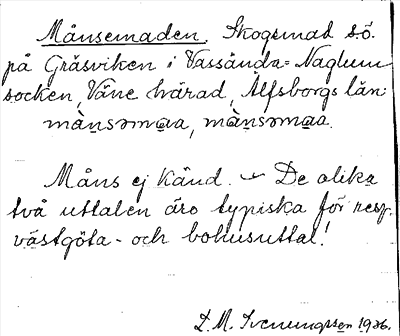 Månsemaden. Skogsmad sö.
på Gräsviken i Vassända-Naglum
socken, Väne härad, Älfsborgs län:
mànsəmaa, mànsəmaa.
Måns ej känd. — De olika
två uttalen äro typiska för resp.
västgöta- och bohusuttal!
D. M. Svenungsson 1936.